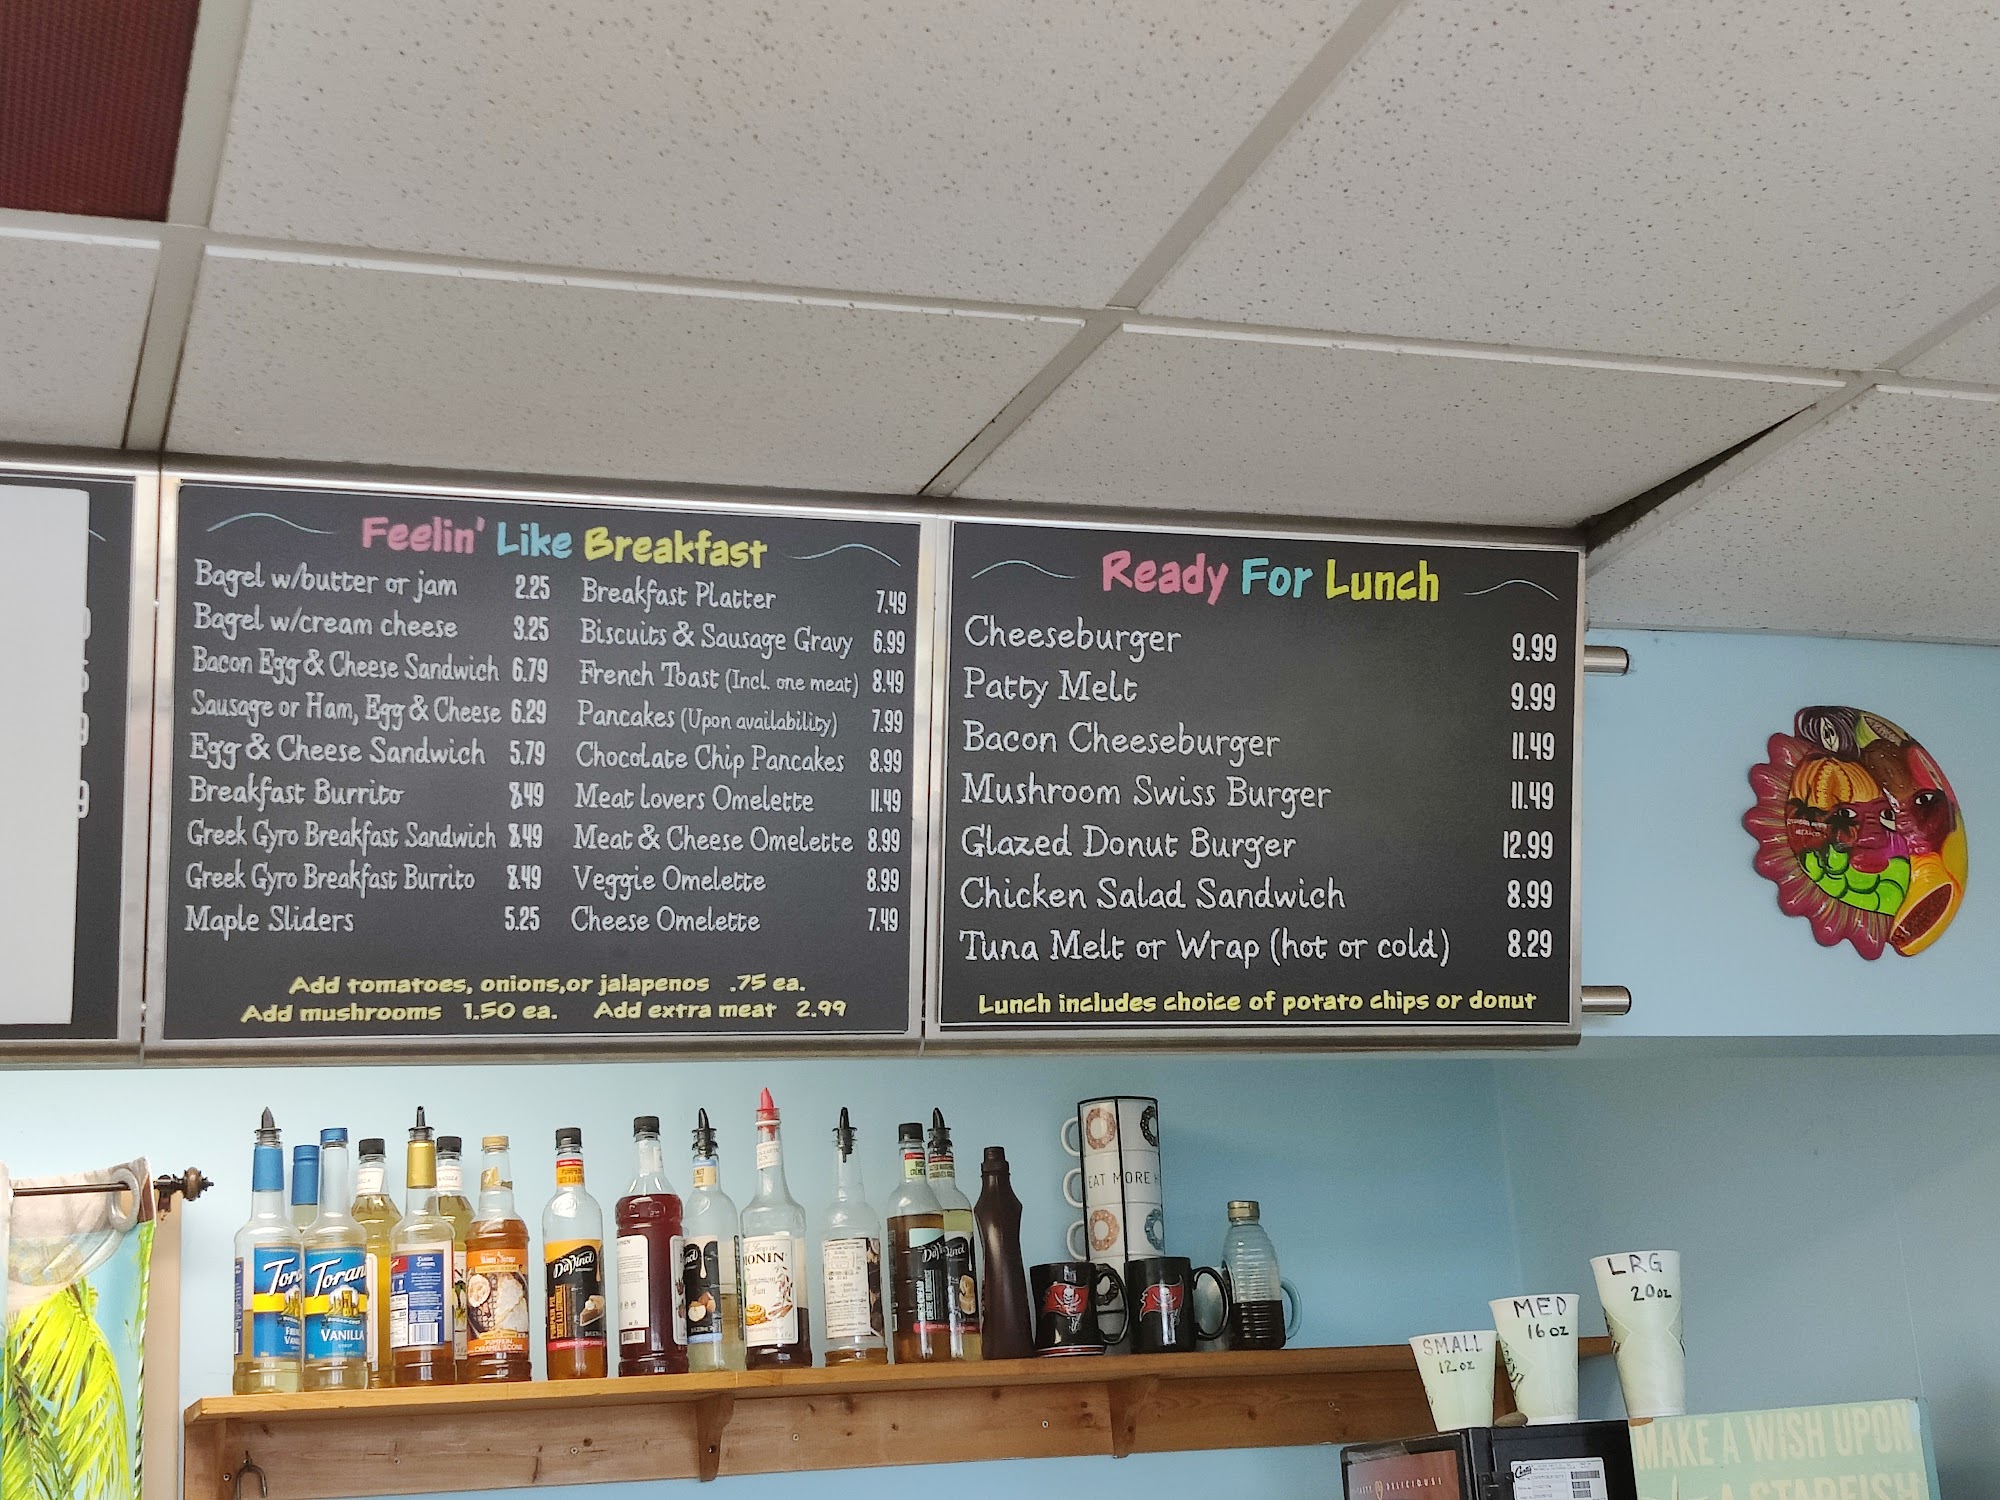 Feelin' Like Breakfast
Bagel w/butter or jam 2.25
Bagel w/cream cheese 3.25
Bacon Egg & Cheese Sandwich 6.79
Sausage or Ham, Egg & Cheese 6.29
Egg & Cheese Sandwich 5.79
Breakfast Burrito 8.49
Greek Gyro Breakfast Sandwich 8.49
Greek Gyro Breakfast Burrito 8.49
Maple Sliders 5.25
Breakfast Platter 7.49
Biscuits & Sausage Gravy 6.99
French Toast (Incl. one meat) 8.49
Pancakes (Upon availability) 7.99
Chocolate Chip Pancakes 8.99
Meat Lovers Omelette 11.49
Meat & Cheese Omelette 8.99
Veggie Omelette 8.99
Cheese Omelette 7.49
Add tomatoes, onions,or jalapenos .75 ea.
Add mushrooms 1.50 ea. Add extra meat 2.99
Ready For Lunch
Cheeseburger 9.99
Patty Melt 9.99
Bacon Cheeseburger 11.49
Mushroom Swiss Burger 11.49
Glazed Donut Burger 12.99
Chicken Salad Sandwich 8.99
Tuna Melt or Wrap (hot or cold) 8.29
Lunch includes choice of potato chips or donut
Torani
VANILLA
DaVinci
MONIN
DaVinci
EAT MORE
SMALL
12 oz
MED
16 oz
LRG
20 oz
DELICIOUS!
MAKE A WISH UPON
A STARFISH